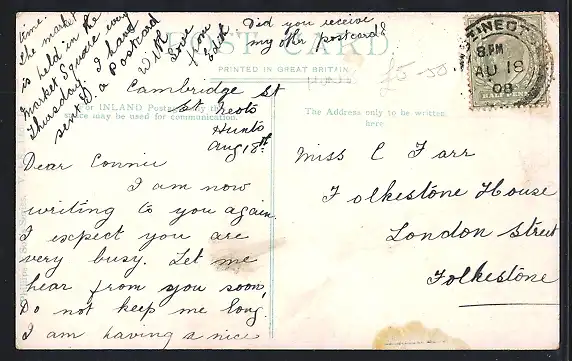 Cambridge St
St Neots
Hunts
Aug 18th
Dear Connie
I am now
writing to you again.
I expect you are
very busy. Let me
hear from you soon,
Do not keep me long.
I am having a nice
time.
The market
is held in the
Market Square every
Thursday. I have
sent D. a Postcard
With
Love
from
Edith
Did you receive
my other postcard?
POST CARD
PRINTED IN GREAT BRITAIN
For INLAND Postage only this
space may be used for communication.
The Address only to be written
here.
Miss C Farr
Folkestone House
London Street
Folkestone
ST NEOTS
8 PM
AU 18
08